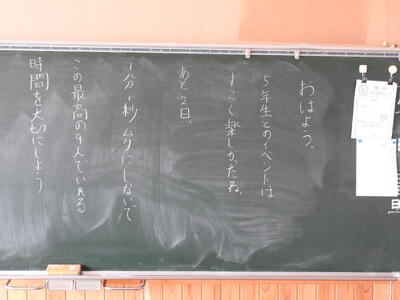 おはよう。
5年生とのイベントは
すごく楽しかったね。
あと2日。
1分1秒ムダにしないで
この最高の9人でいれる
時間を大切にしよう